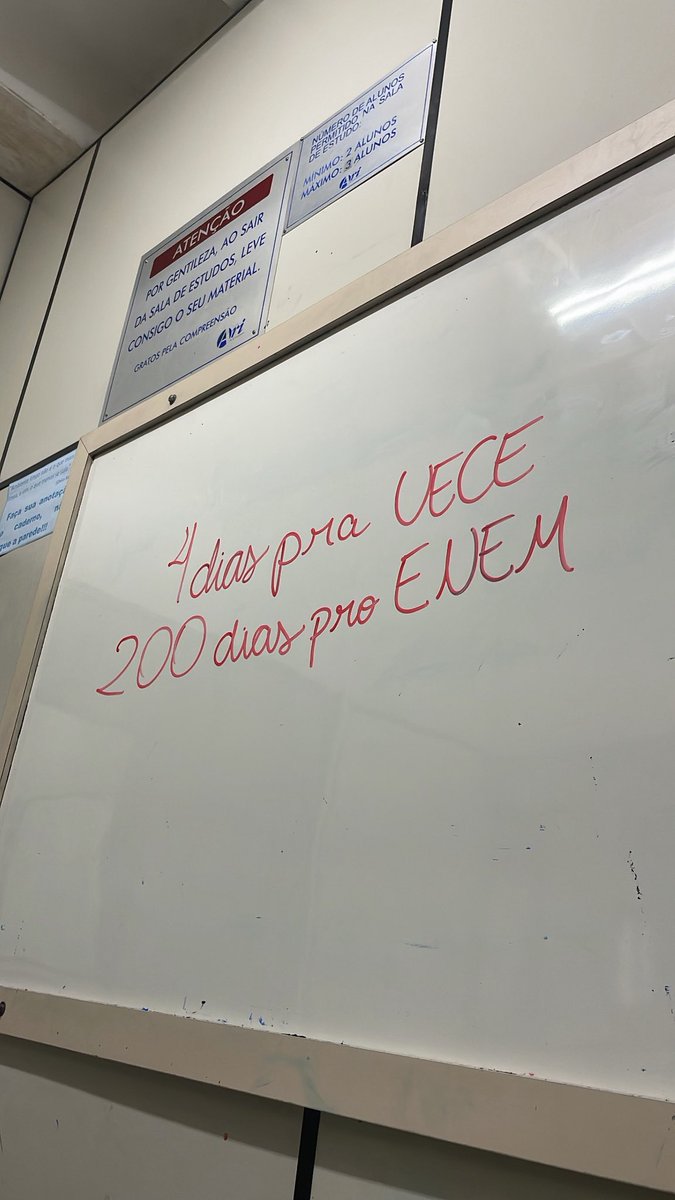 NÚMERO DE ALUNOS
PERMITIDO NA SALA
DE ESTUDO:
MÍNIMO: 2 ALUNOS
MÁXIMO: 3 ALUNOS
Ari
ATENÇÃO
POR GENTILEZA, AO SAIR
DA SALA DE ESTUDOS, LEVE
CONSIGO O SEU MATERIAL.
GRATOS PELA COMPREENSÃO
Ari
4 dias pra UECE
200 dias pro ENEM
Faça sua anotaç
caderno,
a parede!!!